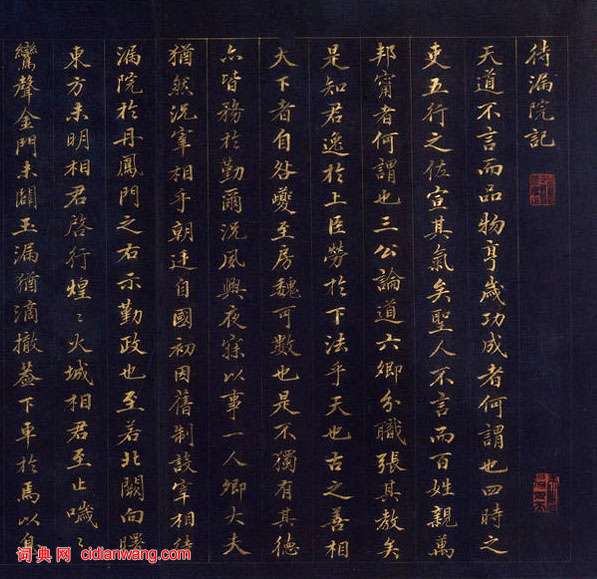 待漏院記
天道不言而品物亨歲功成者何謂也四時之
吏五行之佐宣其氣矣聖人不言而百姓親萬
邦甯者何謂也三公論道六卿分職張其教矣
是知君逸於上臣勞於下法乎天也古之善相
天下者自咎夔至房魏可數也是不獨有其德
亦皆務於勤爾況夙興夜寐以事一人卿大夫
猶然況宰相乎朝廷自國初因舊制設宰相待
漏院於丹鳳門之右示勤政也至若北闕向曙
東方未明相君啓行煌〻火城相君至止噦〻
鸞聲金門未闢玉漏猶滴撤蓋下車於焉以息
词典网 cidianwang.com